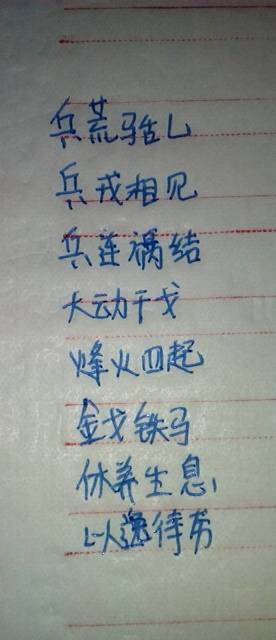 兵荒马乱
兵戎相见
兵连祸结
大动干戈
烽火四起
金戈铁马
休养生息,
以逸待劳